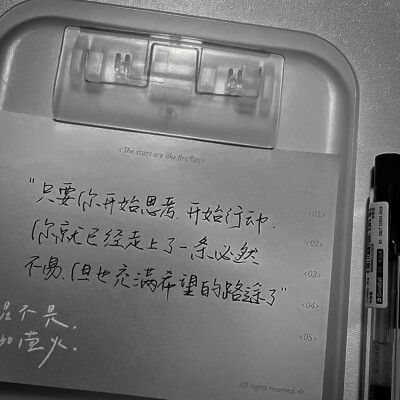 <The stars are like fireflies>
"只要你开始思考、开始行动、
<01>
你就已经走上了一条必然
<02>
不易、但也充满希望的路途了"
<03>
<04>
<05>
不畏,
如萤火.
All rights reserved. ©